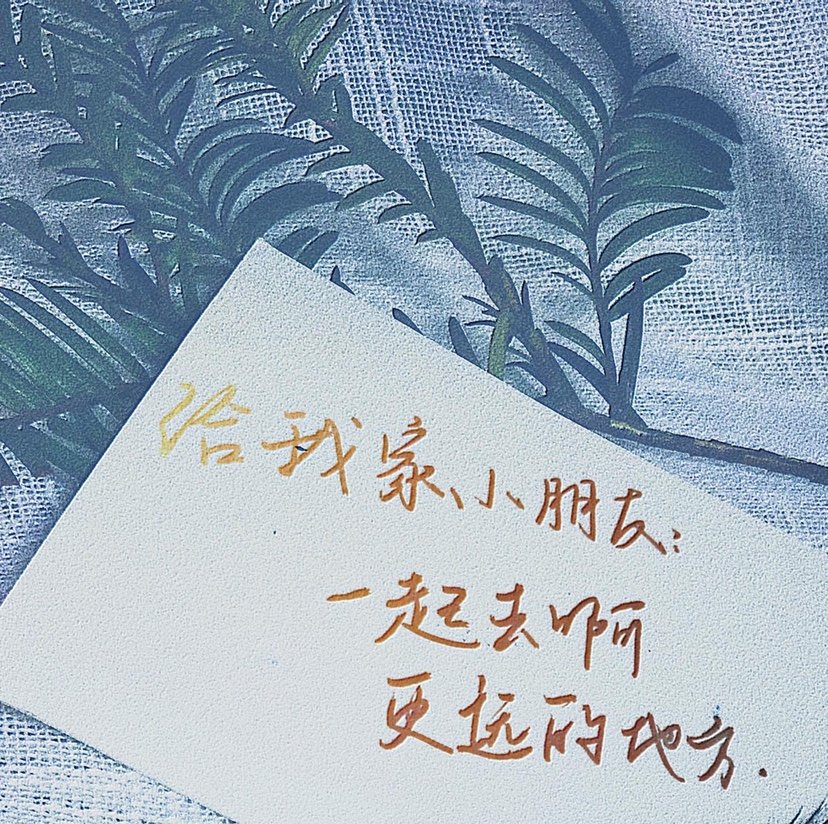 给我家小朋友:
一起去啊
更远的地方.